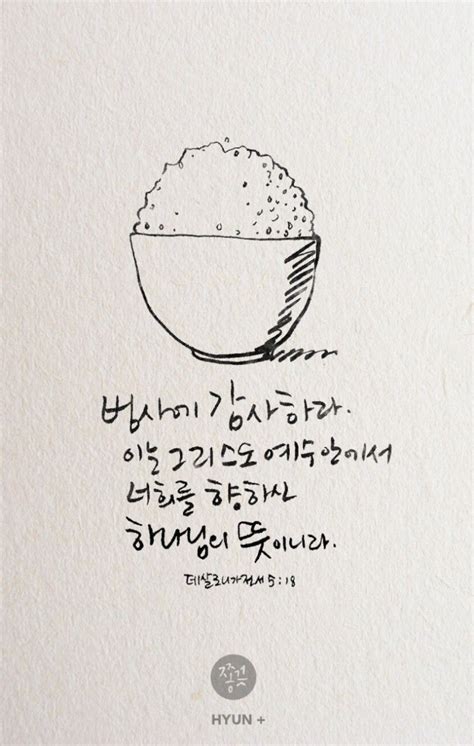 범사에 감사하라.
이는 그리스도 예수 안에서
너희를 향하신
하나님의 뜻이니라.
데살로니가전서 5:18
HYUN +